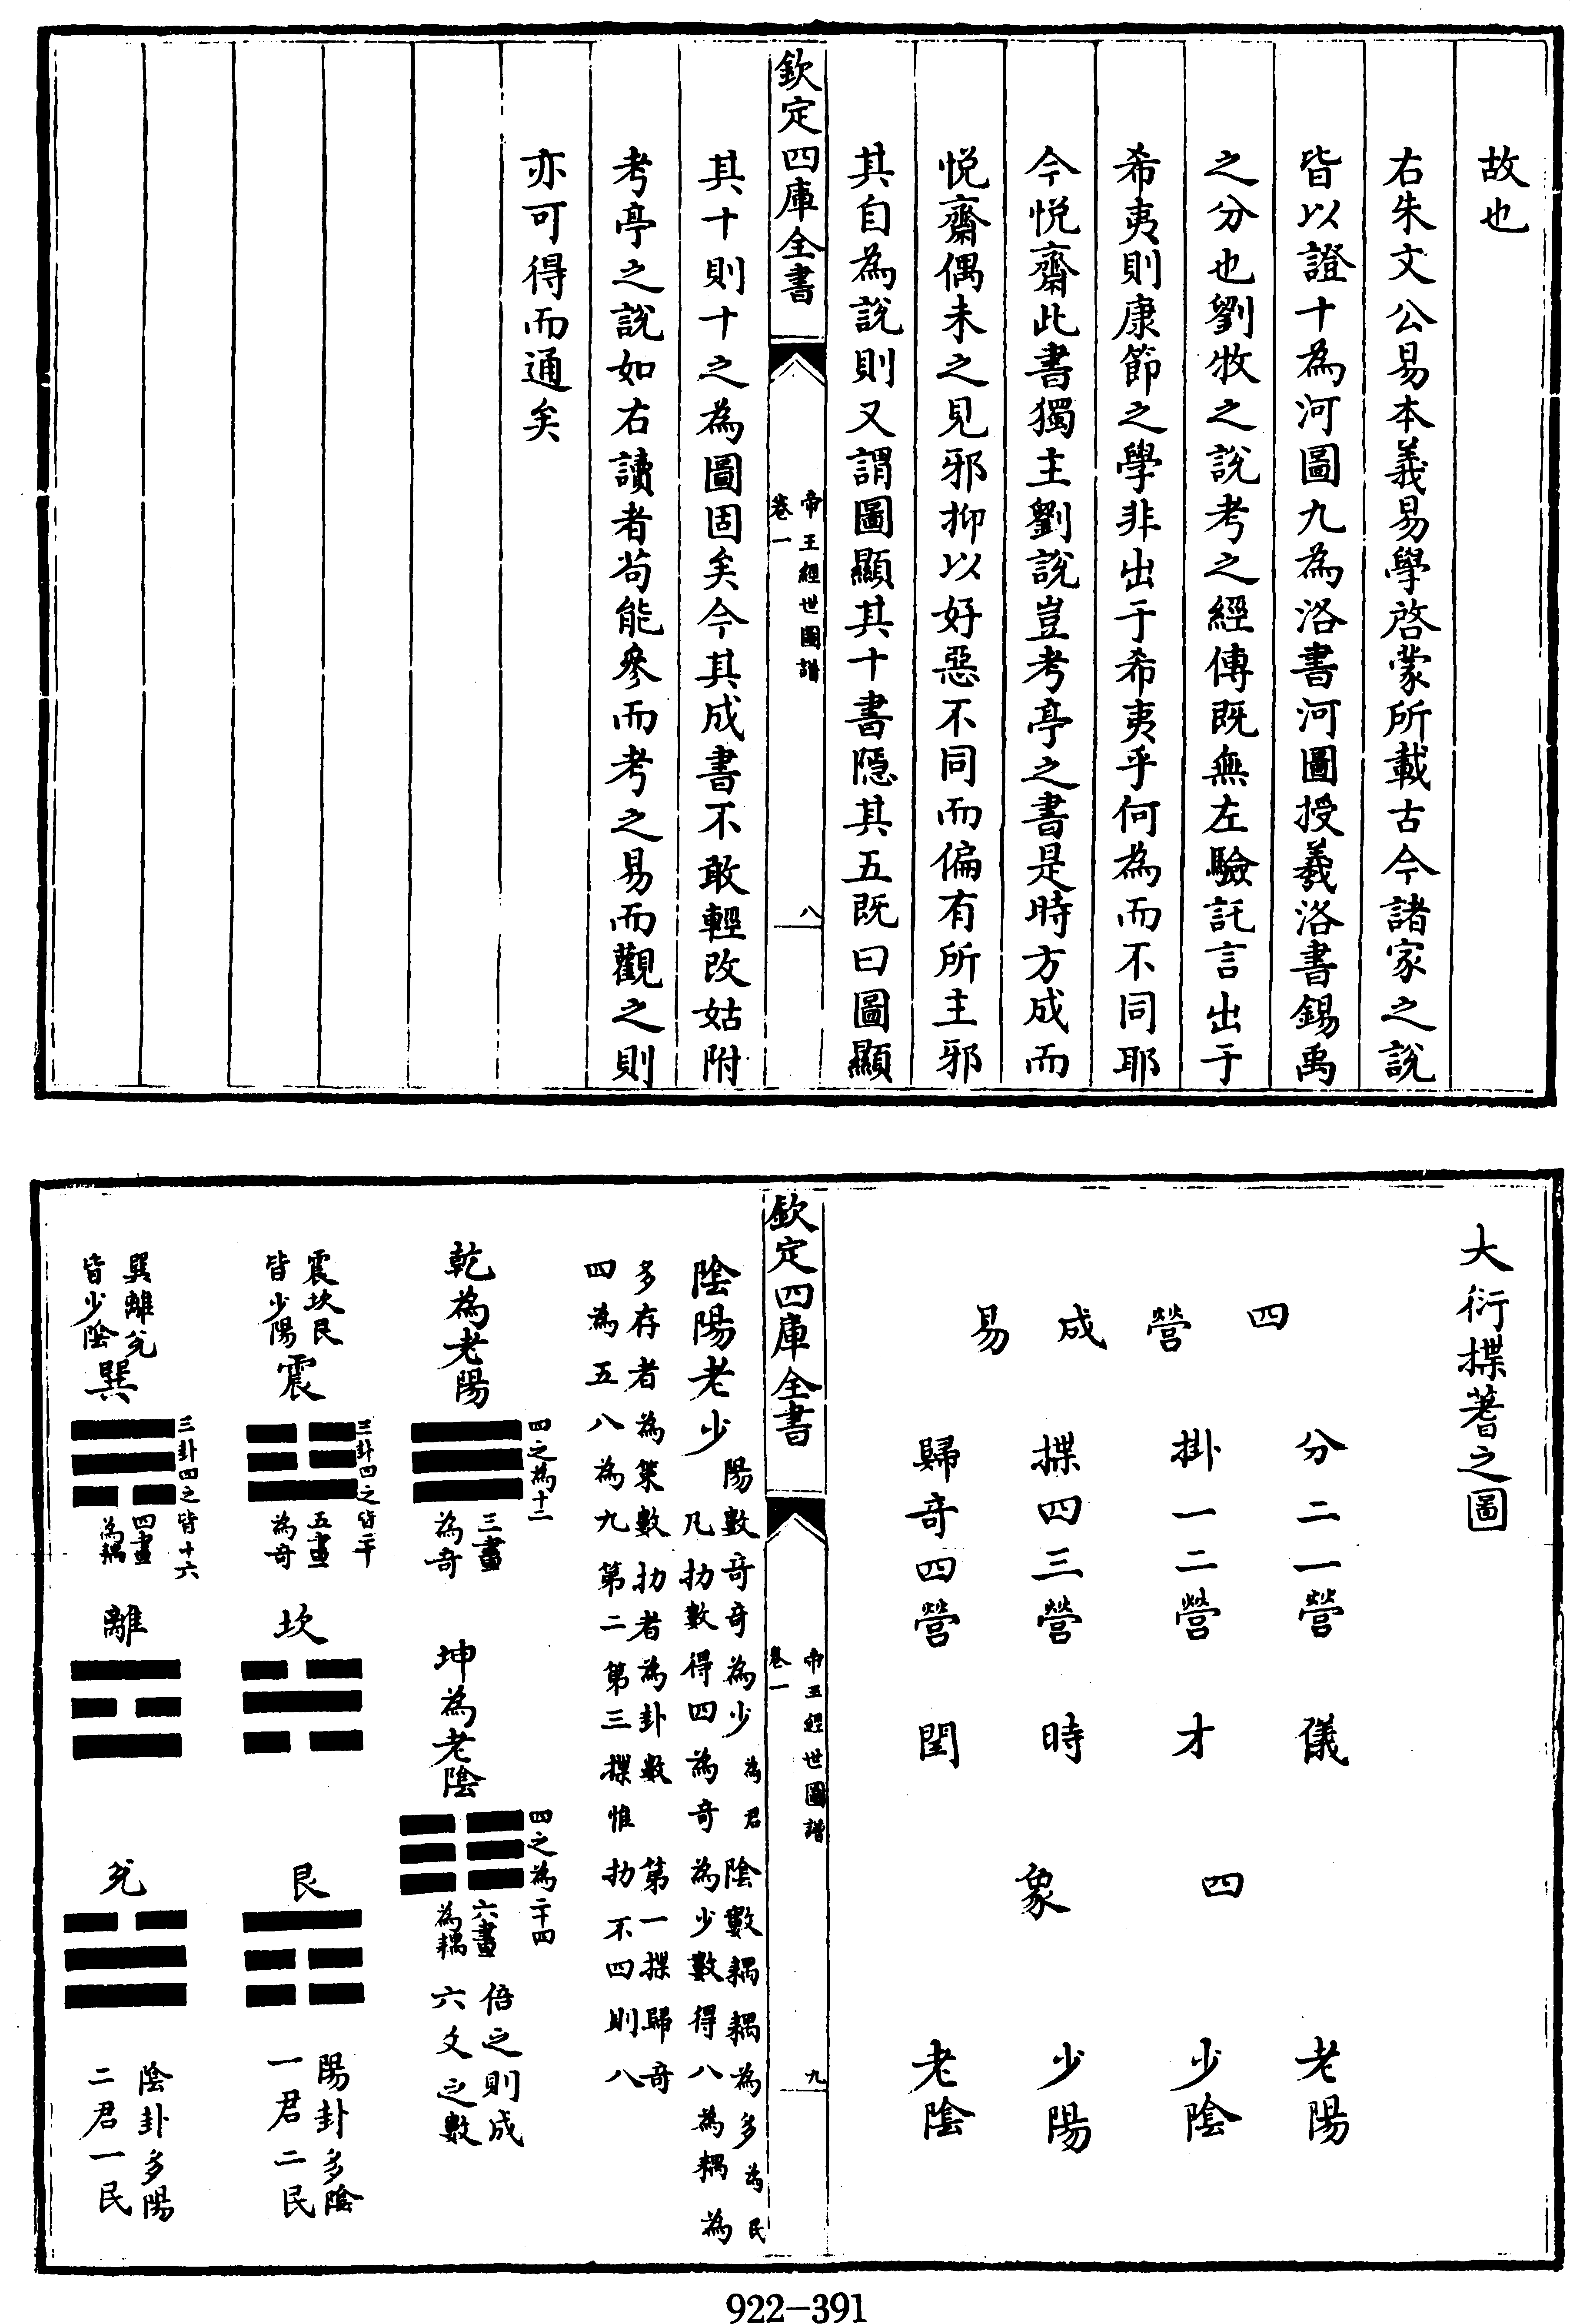 故也
右朱文公易本義易學啓蒙所載古今諸家之說
皆以證十為河圖九為洛書河圖授羲洛書錫禹
之分也劉牧之說考之經傳既無左驗託言出于
希夷則康節之學非出于希夷乎何為而不同耶
今悦齋此書獨主劉說豈考亭之書是時方成而
悦齋偶未之見邪抑以好惡不同而偏有所主邪
其自為說則又謂圖顯其十書隱其五既曰圖顯
欽定四庫全書
帝王經世圖譜
卷一
八
其十則十之為圖固矣今其成書不敢輕改姑附
考亭之說如右讀者苟能參而考之易而觀之則
亦可得而通矣
大衍揲蓍之圖
四營成易
分二一營 儀
掛一二營 才
揲四三營 時
歸奇四營 閏
四象
老陽
少陰
少陽
老陰
欽定四庫全書
帝王經世圖譜
卷一
九
陰陽老少
陽數奇奇為少為君 陰數耦耦為多為民
凡扐數得四為奇為少數得八為耦為
多存者為策數扐者為卦數 第一揲歸奇
四為五八為九第二第三揲惟扐不四則八
乾為老陽
四之為十二
三畫
為奇
坤為老陰
四之為二十四
六畫
為耦
倍之則成
六爻之數
震坎艮
皆少陽
震
三卦四之皆二十
五畫
為奇
坎
艮
陽卦多陰
一君二民
巽離兌
皆少陰
巽
三卦四之皆十六
四畫
為耦
離
兌
陰卦多陽
二君一民
922-391